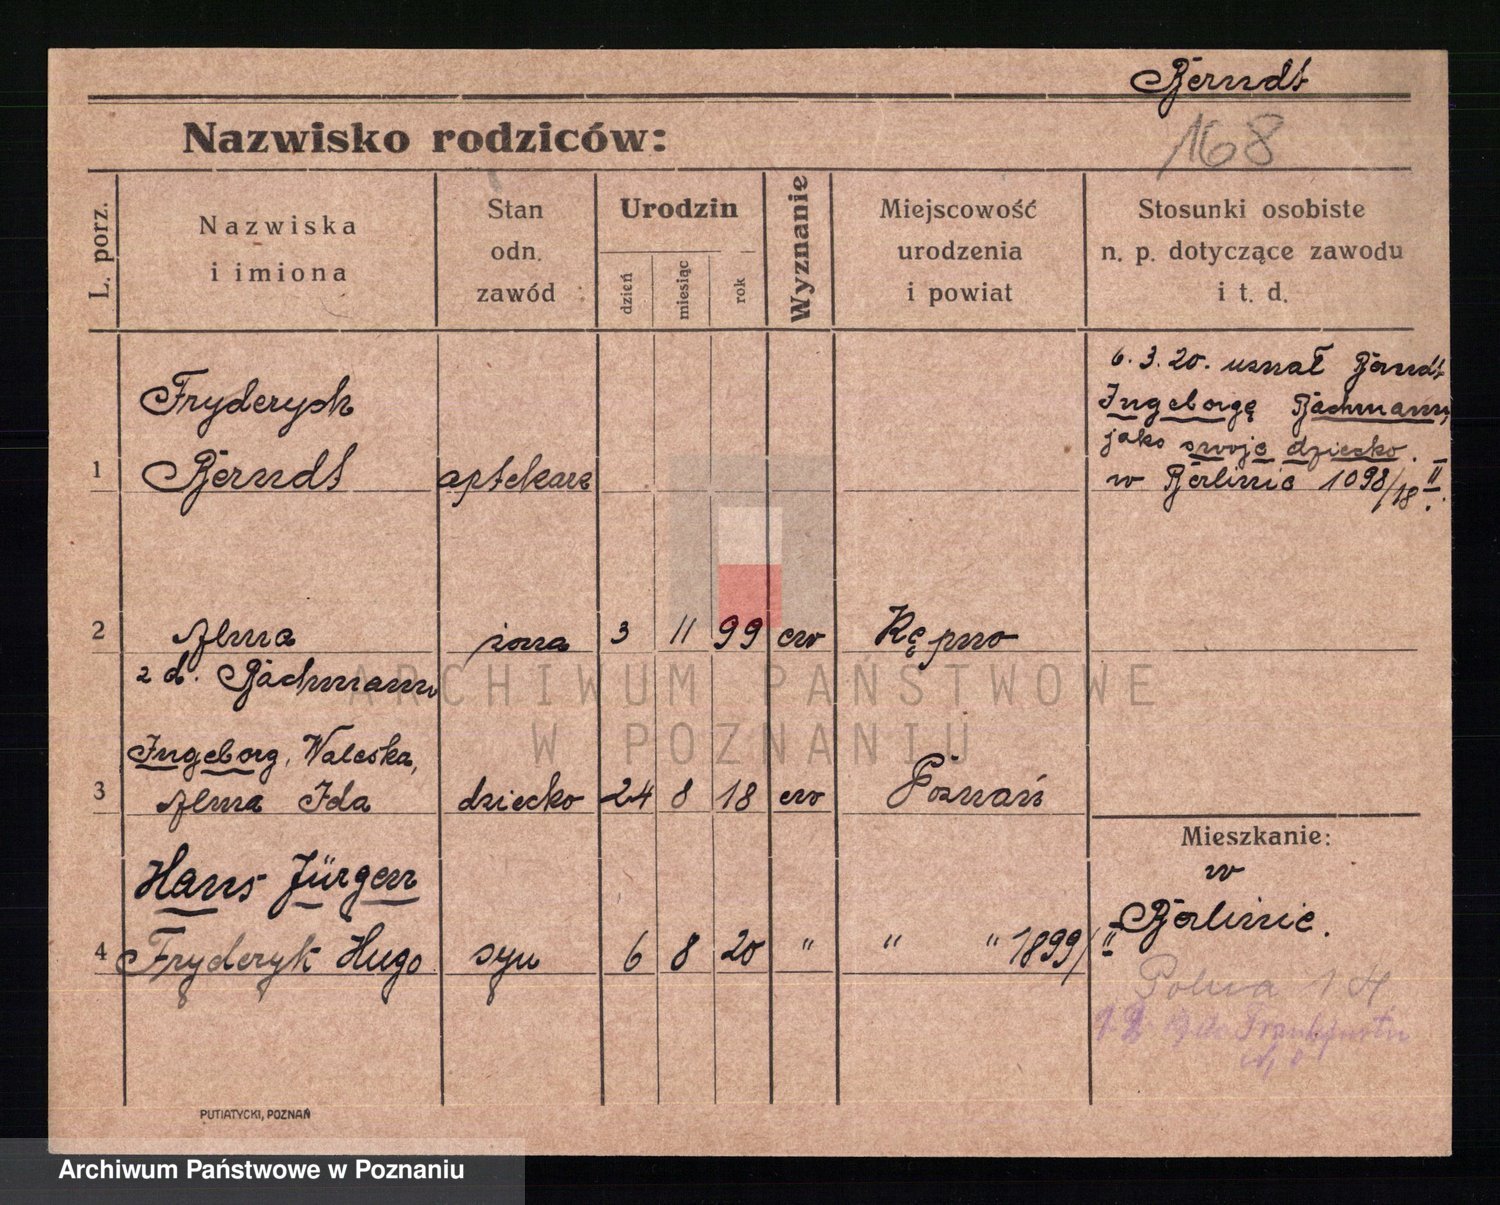 Berndt
Nazwisko rodziców:
168
L. porz.
Nazwiska
i imiona
Stan
odn.
zawód
Urodzin
dzień
miesiąc
rok
Wyznanie
Miejscowość
urodzenia
i powiat
Stosunki osobiste
n. p. dotyczące zawodu
i t. d.
6. 3. 20. uznał Berndt
Ingeborgę Bachmann,
jako swoje dziecko.
w Berlinie 1098/18 II.
Fryderyk
1 Berndt aptekarz
2 Alma żona 3 11 99 ew Kępno
z d. Bachmann
Ingeborg, Waleska,
3 Alma Ida dziecko 24 8 18 ew Poznań
Mieszkanie:
w
Berlinie.
Hans Jürgen
4 Fryderyk Hugo syn 6 8 20 " " " 1899/II
Polna 14
Frankfurtu
PUTIATYCKI, POZNAŃ
ARCHIWUM PAŃSTWOWE
W POZNANIU
Archiwum Państwowe w Poznaniu